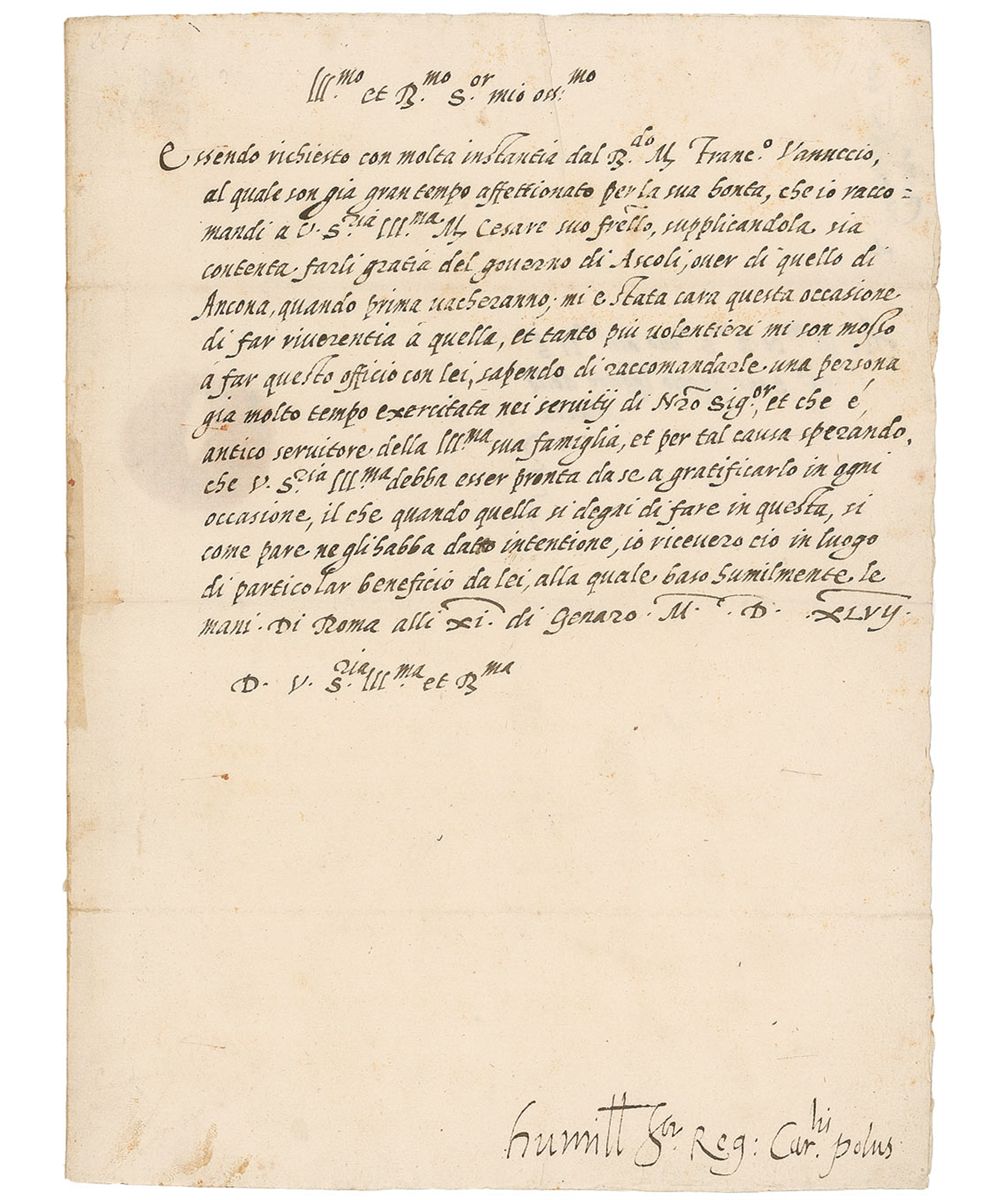 Ill.mo et R.mo S.or mio oss.mo
Essendo richiesto con molta instantia dal R.do M. Franc.o Vannuccio,
al quale son gia gran tempo affettionato per la sua bonta, che io racco=
mandi a V. S.ria Ill.ma M. Cesare suo frello, supplicandola sia
contenta farli gratia del governo di Ascoli, over di quello di
Ancona, quando prima vacheranno; mi e stata cara questa occasione
di far riverentia à quella, et tanto più volentieri mi son mosso
à far questo officio con lei, sapendo di raccomandarle una persona
già molto tempo exercitata nei servitij di Nr̃o Sig.or, et che é,
antico servitore della Ill.ma sua famiglia, et per tal causa sperando,
che V. S.ria Ill.ma debba esser pronta da se a gratificarlo in ogni
occasione, il che quando quella si degni di fare in questa, si
come pare ne gli habba dato intentione, io ricevero cio in luogo
di particolar beneficio da lei, alla quale baso humilmente le
mani. Di Roma alli xi. di Genaro M. D. XLVij.
D. V. S.ria Ill.ma et R.ma
humill S.or Reg: Car.lis polus